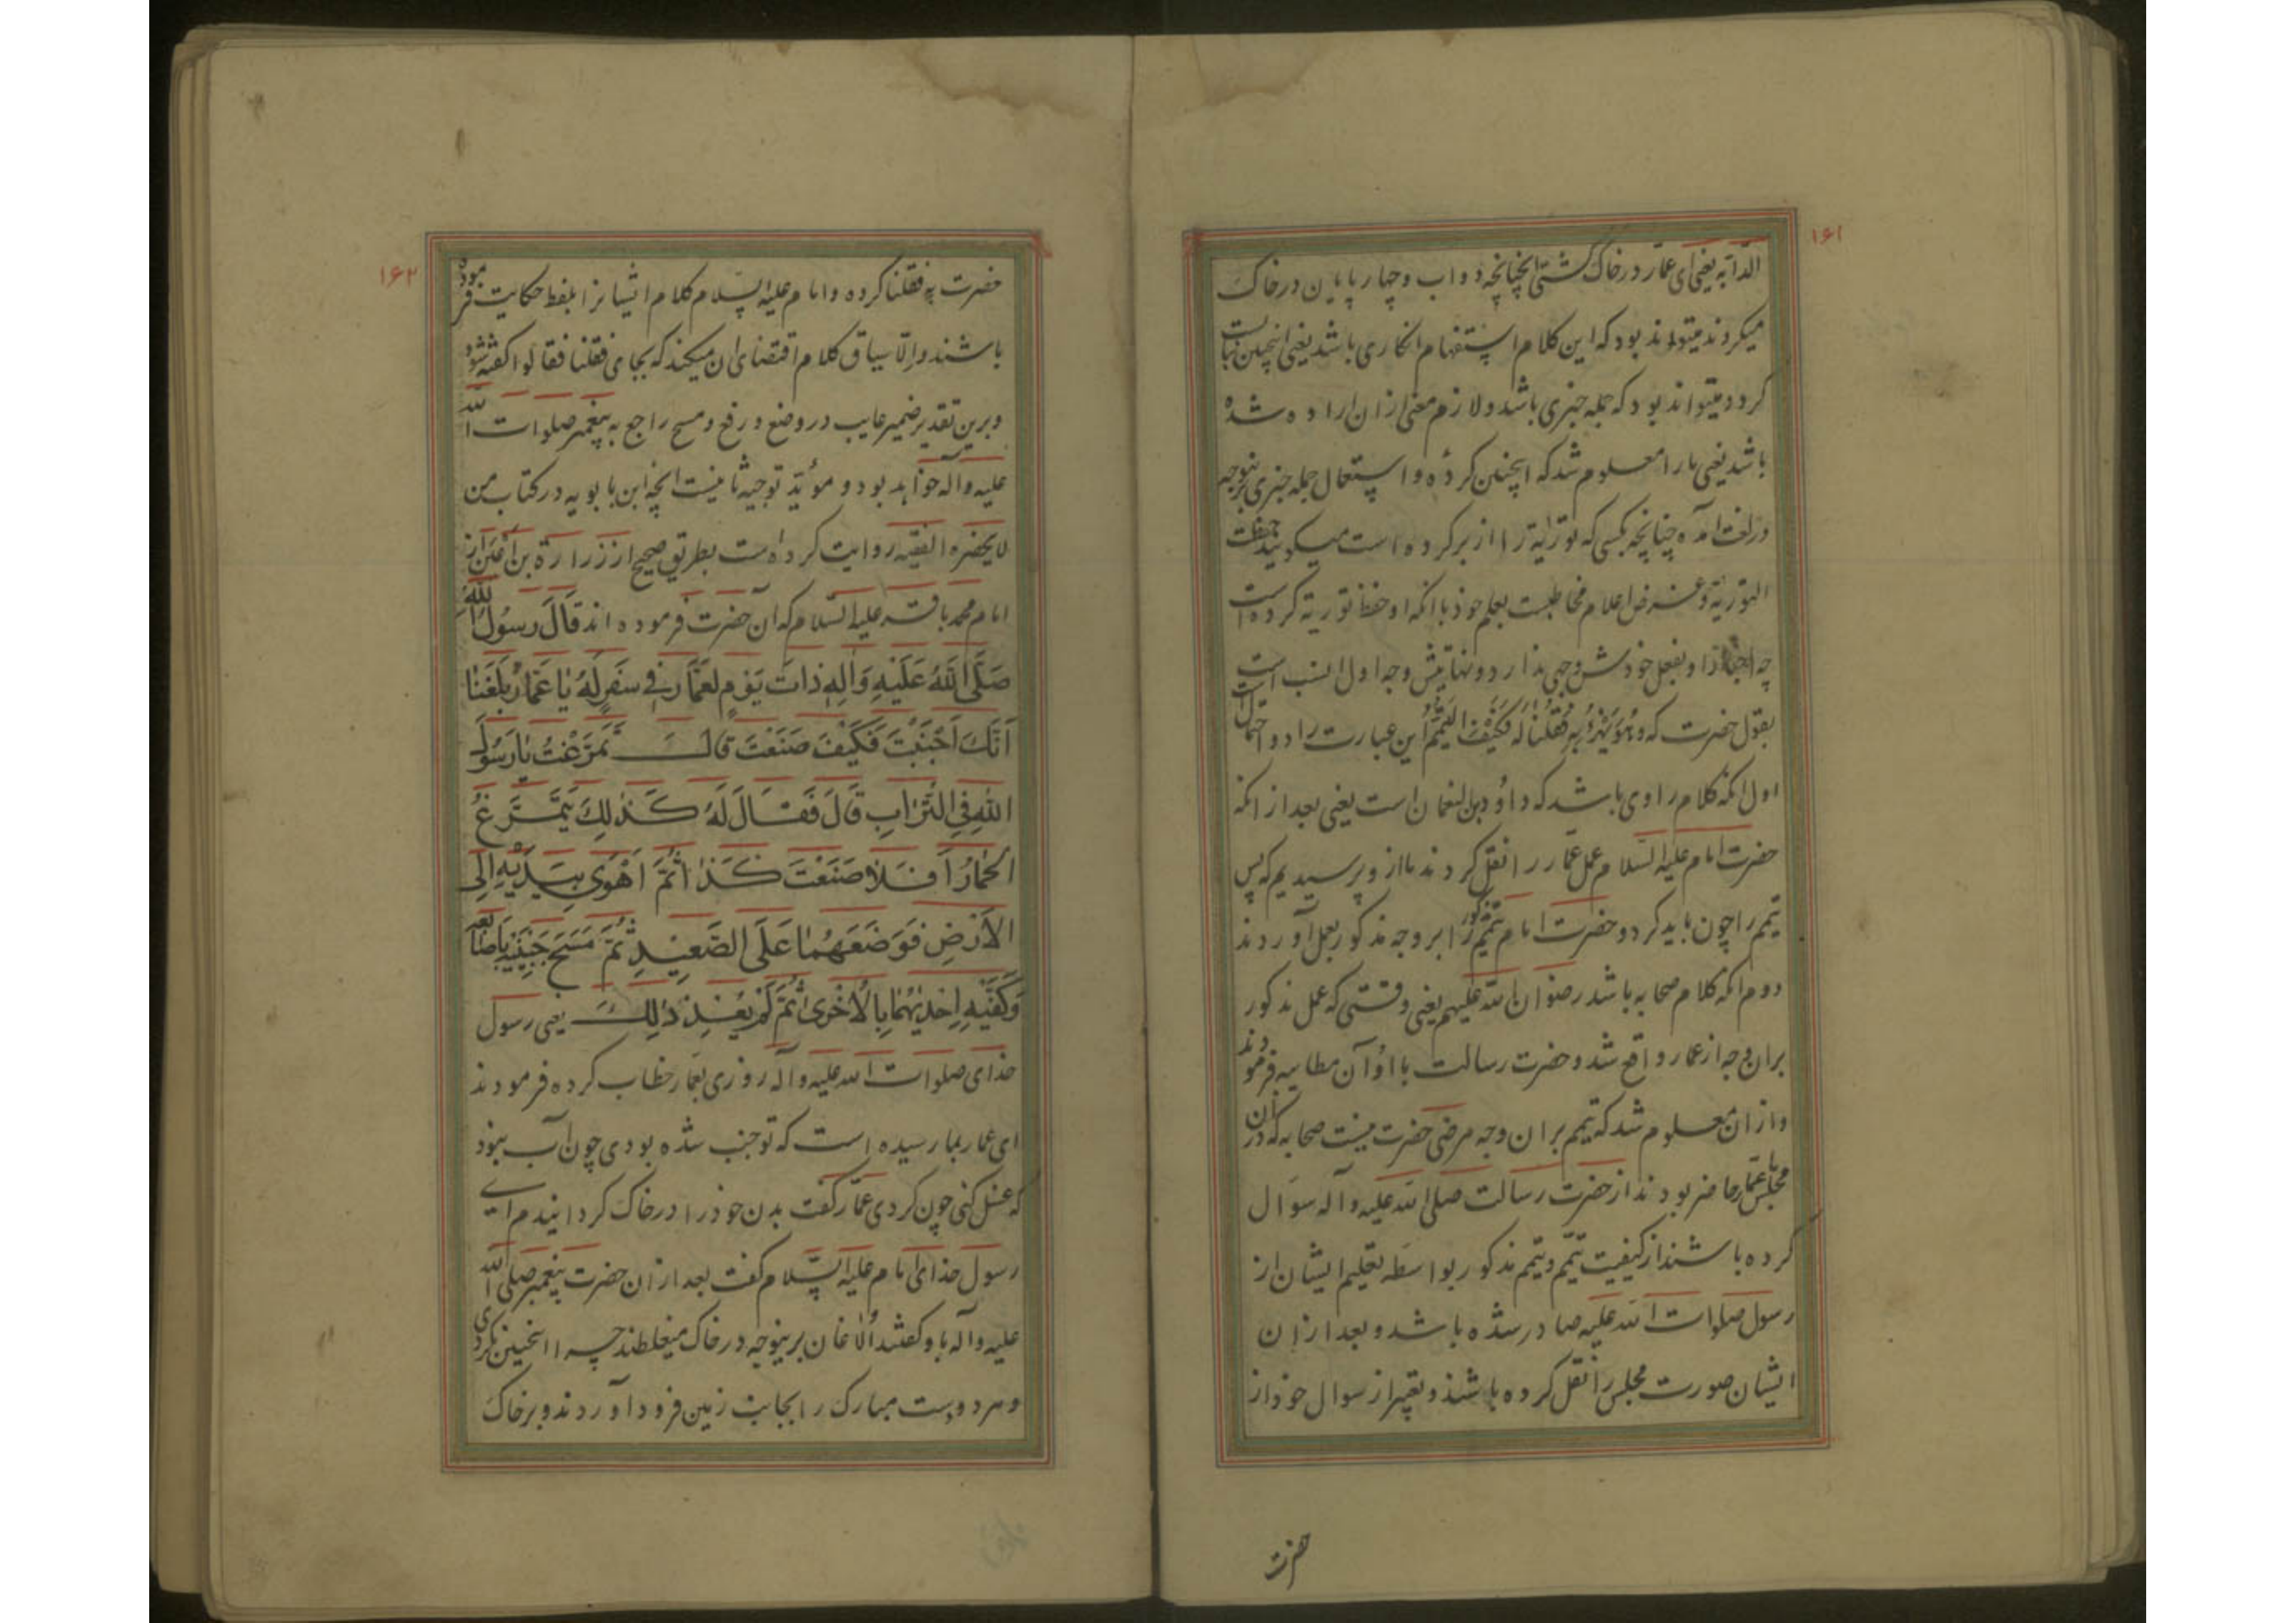 ۱۶۱
الدابه یعنی ای عمار در خاک گشتی انچنانچه دواب و چهارپایان در خاک
میکردند میتواند بود که این کلام استفهام انکاری باشد یعنی اینچنین نبایست
کرد و میتواند بود که جمله خبری باشد و لازم معنی ازان اراده شده
باشد یعنی ما را معلوم شد که اینچنین کردهٔ و استعمال جمله خبری برینوجه
در لغت آمده چنانچه بکسی که توریة را از بر کرده است میگویند حفظت
التوریة و غرض اعلام مخاطبست بعلم خود بانکه او حفظ توریة کرده است
چه اخبار او بفعل خودش وجهی ندارد و نهایتش وجه اول انسب است
بقول حضرت که وهو یهزء به فقلنا له فکیف التیمم این عبارت را دو احتمال
اول انکه کلام راوی باشد که داود بن النعمان است یعنی بعد از انکه
حضرت امام علیه السلام عمل عمار را نقل کردند ما ازو پرسیدیم که پس
تیمم را چون باید کرد و حضرت امام تیمم را بر وجه مذکور بعمل آوردند
دوم انکه کلام صحابه باشد رضوان الله علیهم یعنی وقتی که عمل مذکور
بران وجه از عمار واقع شد و حضرت رسالت با او آن مطایبه فرمودند
و ازان معلوم شد که تیمم بران وجه مرضی حضرت نیست صحابه که دران
مجلس با عمار حاضر بودند از حضرت رسالت صلی الله علیه و آله سوال
کرده باشند از کیفیت تیمم و تیمم مذکور بواسطه تعلیم ایشان از
رسول صلوات الله علیه صادر شده باشد و بعد ازان
ایشان صورت مجلس را نقل کرده باشند و تعبیر از سوال خود از
حضرت
۱۶۲
حضرت به فقلنا کرده و امام علیه السلام کلام ایشانرا بلفظ حکایت فرموده
باشند و الا سیاق کلام اقتضای ان میکند که بجای فقلنا فقالوا گفته شود
و برین تقدیر ضمیر غایب در وضع و رفع و مسح راجع به پیغمبر صلوات الله
علیه و آله خواهد بود و مؤید توجیه ثانیست انچه ابن بابویه در کتاب من
لا یحضره الفقیه روایت کرده است بطریق صحیح از زرارة بن اعین از
امام محمد باقر علیه السلام که آن حضرت فرموده اند قَالَ رَسُولُ اللهِ
صَلَّى اللهُ عَلَيْهِ وَآلِهِ ذَاتَ يَوْمٍ لِعَمَّارٍ فِي سَفَرٍ لَهُ يَا عَمَّارُ بَلَغَنَا
اَنَّكَ اَجْنَبْتَ فَكَيْفَ صَنَعْتَ قَالَ تَمَرَّغْتُ يَا رَسُولَ
اللهِ فِي التُّرَابِ قَالَ فَقَالَ لَهُ كَذٰلِكَ يَتَمَرَّغُ
الْحِمَارُ اَفَلَا صَنَعْتَ كَذَا ثُمَّ اَهْوَى بِيَدَيْهِ اِلَى
الْاَرْضِ فَوَضَعَهُمَا عَلَى الصَّعِيدِ ثُمَّ مَسَحَ جَبِينَيْهِ بِاَصَابِعِهِ
وَكَفَّيْهِ اِحْدٰيهُمَا بِالْاُخْرَى ثُمَّ لَمْ يُعِدْ ذٰلِكَ یعنی رسول
خدای صلوات الله علیه و آله روزی بعمار خطاب کرده فرمودند
ای عمار بما رسیده است که تو جنب شده بودی چون آب نبود
که غسل کنی چون کردی عمار گفت بدن خود را در خاک گردانیدم ای
رسول خدای امام علیه السلام گفت بعد ازان حضرت پیغمبر صلی الله
علیه و آله با و گفتند الاغان برینوجه در خاک میغلطند چرا اینچنین نکردی
و هر دو دست مبارک را بجانب زمین فرود آوردند و بر خاک